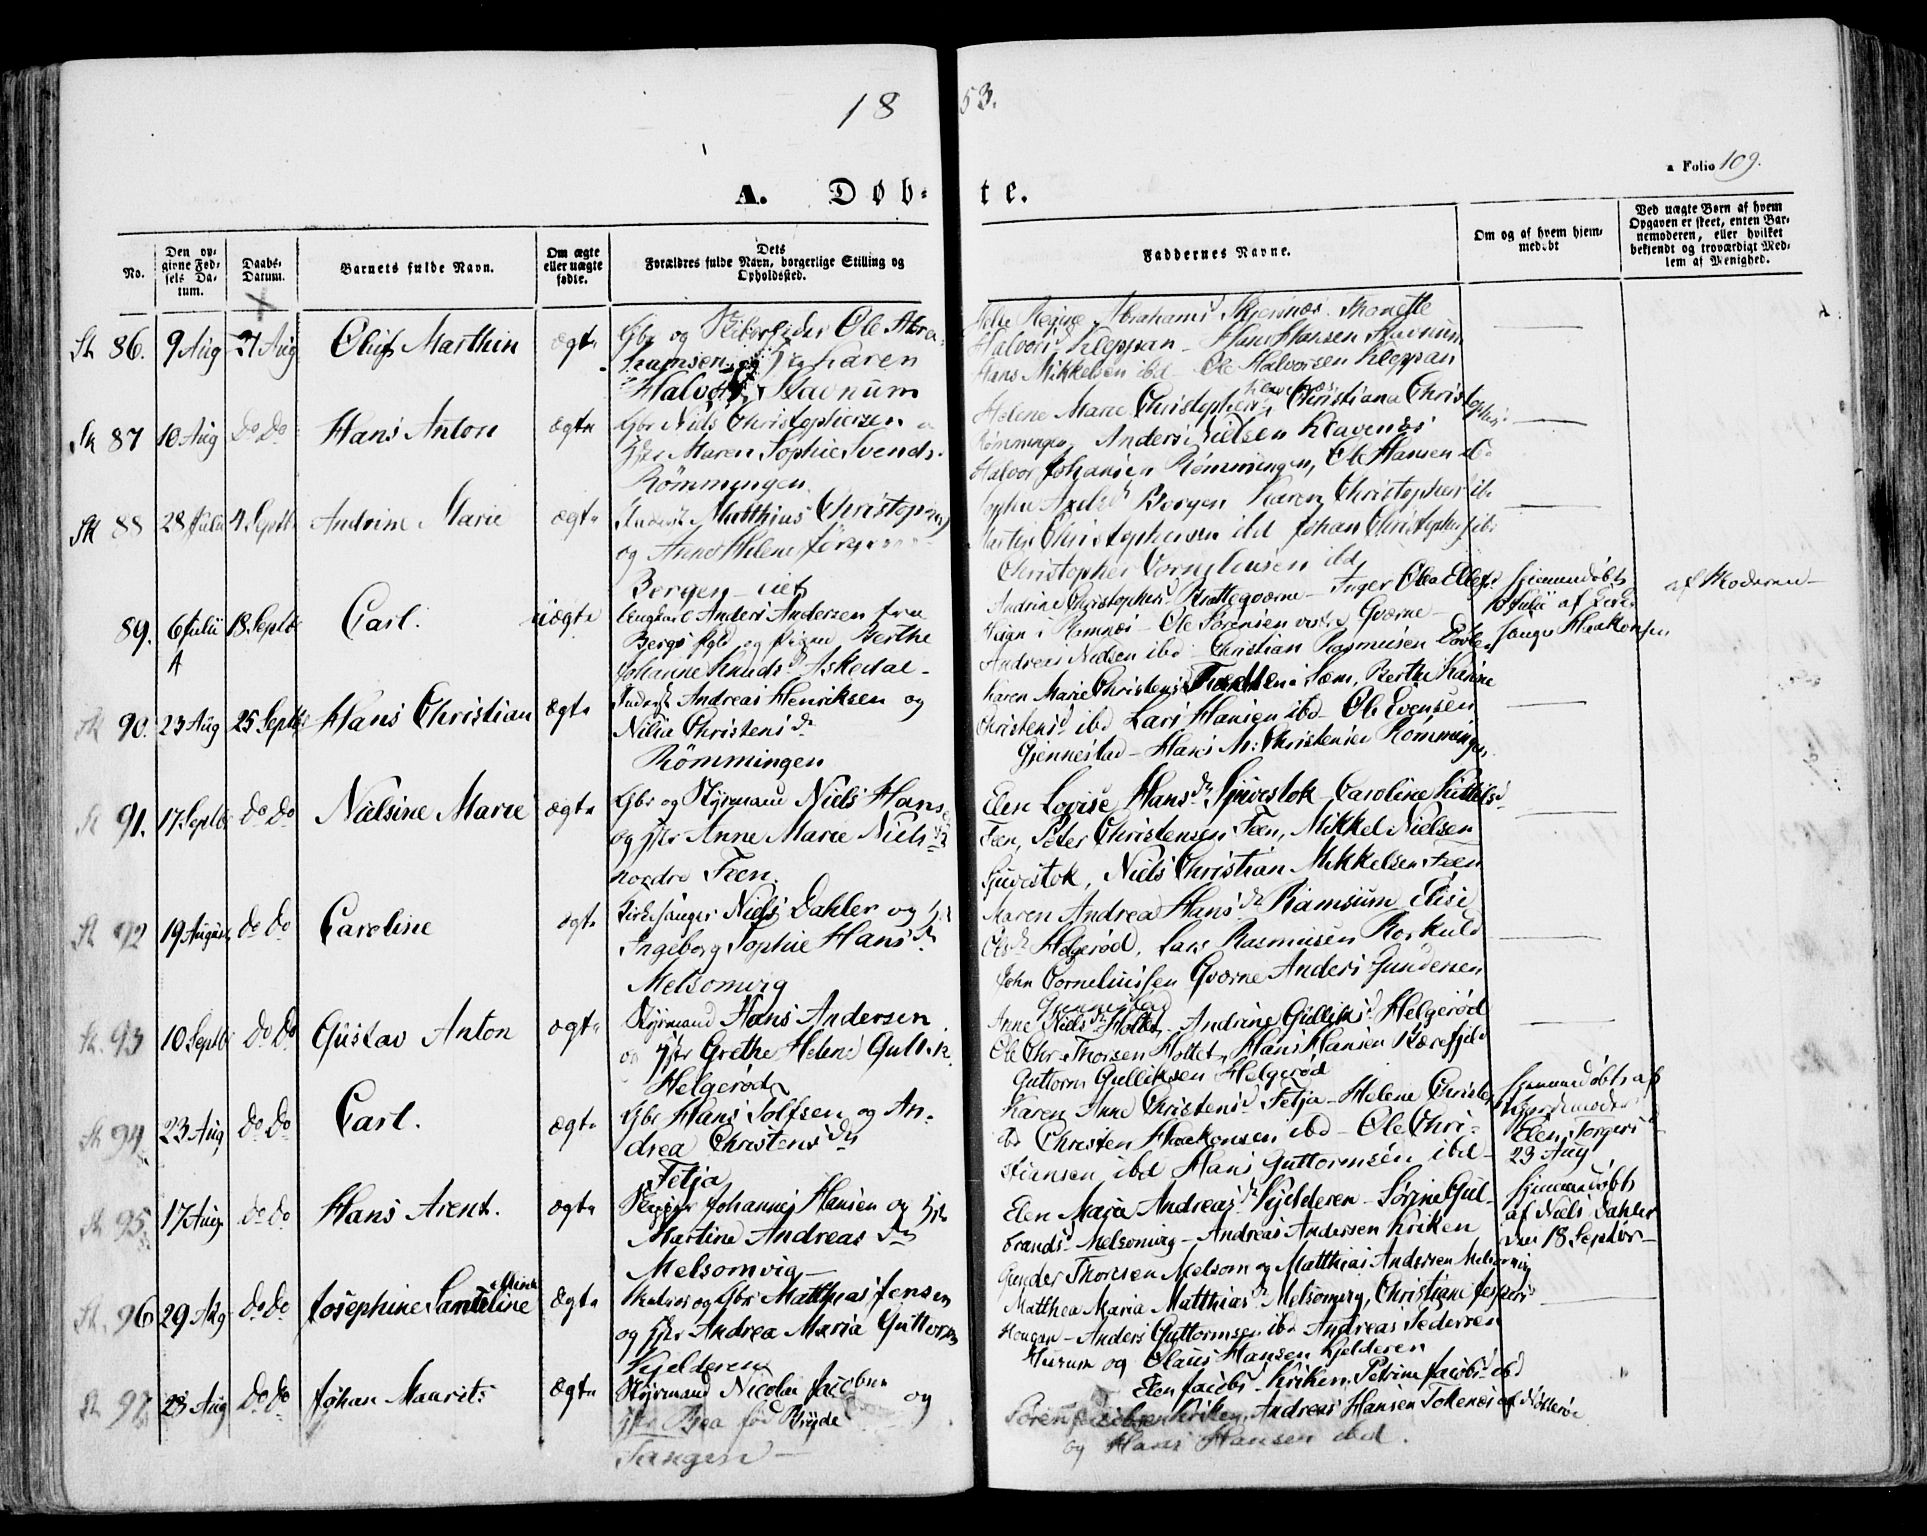 1853.
a Folio 109.
A. Døb-te.
No.
Den op-
givne Fød-
sels Da-
tum.
Daabs-
Datum.
Barnets fulde Navn.
Om ægte
eller uægte
fødte.
Dets
Forældres fulde Navn, borgerlige Stilling og
Opholdssted.
Faddernes Navne.
Om og af hvem hjem-
medøbt
Ved uægte Børn af hvem
Opgaven er skeet, enten Bar-
nemoderen, eller hvilket
bekjendt og troværdigt Med-
lem af Menighed.
86. 9 Aug 21 Aug Oluf Marthin ægte
Gbr og Ole Abra-
hamsen og Karen
Halvors Stavnum
Regine Abrahams
Halvors Kleppan - Hans Hansen Stavnum
Hans Mikkelsen ibd - Ole Halvorsen Kleppan
87 10 Aug Do Do Hans Anton ægte
Gbr Niels Christophersen
Maren Sophie Svends.
Rømmingen
Helene Marie Christophers Christiana Christophers
Rømmingen Anders Nielsen Klavenæs
Halvor Johansen Rømmingen, Ole Hansen ibd
88 28 Julii 4 Septb Andrine Marie ægte
Inderst Matthias Christophers
og Anne Helene
Bergen
Sophie Bergen Karen Christophers ib
Christophersen ibd Johan Christophers ibd
Christopher Corneliusen ibd
89. 6 Julii 18 Septbr Carl. uægte
Ungkarl Anders Andersen fra
Bergs Pgld og Pigen Berthe
Johanne Knudsd Askedal -
Andrine Christophers Brattegværne - Inger Olea
i Ramnæs - Ole Sørensen vestre Gværne -
Andreas Nielsen ibd - Christian Rasmusen
hjemmedøbt
Julii af Kirke-
sanger Haakonsen
af Moderen -
90. 23 Aug 25 Septbr Hans Christian ægte
Inderst Andreas Henriksen og
Nilia Christensd
Rømmingen
Karen Marie Christens i Sæm, Berthe Karine
Christensd ibd Lars Hansen ibd - Ole Evensen
Gjennestad - Hans M: Christensen Rømmingen
91. 17 Septbr Do Do Nielsine Marie ægte
Gbr og Styrmand Niels Hans
og Anne Marie Niels
nordre Feen.
Elen Lovise Hansd Sjuestok - Caroline
Feen, Peter Christensen Feen, Mikkel Nielsen
Sjuestok, Niels Christian Mikkelsen Feen
92 19 August Do Do Caroline ægte
Kirkesanger Niels Dahler og
Ingeborg Sophie Hansd
Melsomvig
Maren Andrea Hansd Ramsum Elise
Olsd Helgerød, Lars Rasmusen Rorkuld
John Corneliussen Gværne Anders Gundersen
Gjennestad
93 10 Septbr Do Do Gustav Anton ægte
Styrmand Hans Andersen
og Grethe Helene
Helgerød
Anne Nielsd Holtet - Andrine Gulliks Helgerød
Ole Chr. Thorsen Holtet, Hans Hansen
Guttorm Gulliksen Helgerød
94. 23 Aug Do Do Carl. ægte
Gbr Hans Tolfsen og An-
drea Christensd
Fetja
Karen Anne Christensd Fetja - Helene
ibd Christen Haakonsen ibd - Ole Chri-
stiansen ibd Hans Guttormsen ibd -
hjemmedøbt af
Elen Torgers
23 Aug
95. 17 Aug Do Do Hans Arent. ægte
Skipper Johannes Hansen og
Martine Andreasd
Melsomvig -
Elen Maja Andreasd Kjelderen - Sørine Gul-
brands Melsomvig - Andreas Andersen Kriken
Gunder Thorsen Melsom og Matthias Andersen Melsomvig
hjemmedøbt
af Niels Dahler
den 18 Septbr -
96 29 Aug Do Do Josephine ægte
Matros og Gbr Matthias Jensen
og Andrea Maria
Kjelderen
Matthea Maria Matthiasd Melsomvig, Christiane Jespers
Haugan - Anders Guttormsen ibd Andreas Pedersen
og Olaus Hansen Kjelderen
97. 23 Aug Do Do Johan Maurits ægte
Styrmand Nicolai Jacobsen og
Bea fød Bryde
Tangen -
Elen Jacobs Kriken, Petrine Jacobs ibd
Søren Jacobsen Kriken, Andreas Hansen
og Hans Hansen ibd.